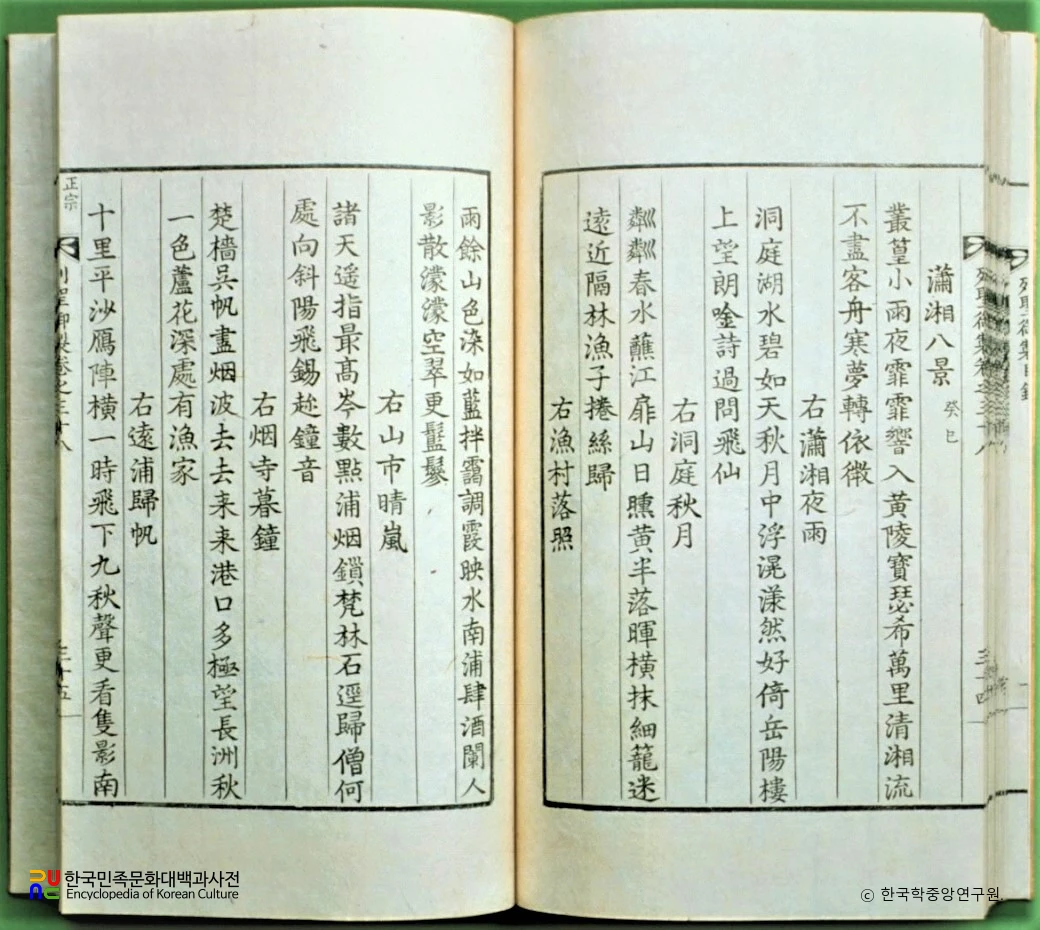 瀟湘八景 癸巳
叢篁小雨夜霏霏響入黃陵寶瑟希萬里清湘流
不盡客舟寒夢轉依微
右瀟湘夜雨
洞庭湖水碧如天秋月中浮滉漾然好倚岳陽樓
上望朗唫詩過問飛仙
右洞庭秋月
粼粼春水蘸江扉山日曛黃半落暉橫抹細籠迷
遠近隔林漁子捲絲歸
右漁村落照
雨餘山色染如藍拌靄調霞映水南浦肆酒闌人
影散濛濛空翠更鬖
右山市晴嵐
諸天遥指最髙岑數點浦烟鎖梵林石逕歸僧何
處向斜陽飛錫趂鐘音
右烟寺暮鐘
楚檣吳帆盡烟波去去来来港口多極望長洲秋
一色蘆花深處有漁家
右遠浦歸帆
十里平沙鴈陣橫一時飛下九秋聲更看隻影南
正宗
列聖御製卷之三十八
三十五
한국민족문화대백과사전
Encyclopedia of Korean Culture
© 한국학중앙연구원.